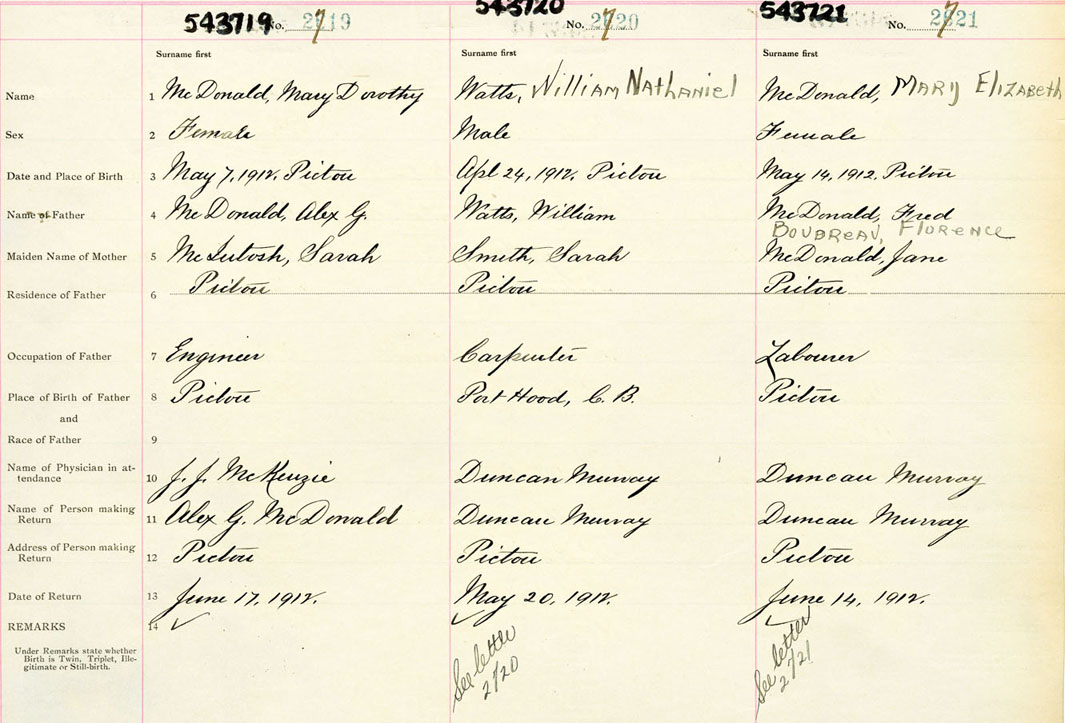 543719 No. 2719 543720 No. 2720 543721 No. 2821
Surname first Surname first Surname first
Name 1 McDonald, Mary Dorothy Watts, William Nathaniel McDonald, Mary Elizabeth
Sex 2 Female Male Female
Date and Place of Birth 3 May 7, 1912. Pictou Apl 24, 1912. Pictou May 14, 1912. Pictou
Name of Father 4 McDonald, Alex G. Watts, William McDonald, Fred
Boudreau, Florence
Maiden Name of Mother 5 McIntosh, Sarah Smith, Sarah McDonald, Jane
Residence of Father 6 Pictou Pictou Pictou
Occupation of Father 7 Engineer Carpenter Labourer
Place of Birth of Father 8 Pictou Port Hood, C. B. Pictou
and
Race of Father 9
Name of Physician in at-
tendance 10 J. J. McKenzie Duncan Murray Duncan Murray
Name of Person making
Return 11 Alex G. McDonald Duncan Murray Duncan Murray
Address of Person making
Return 12 Pictou Pictou Pictou
Date of Return 13 June 17, 1912. May 20, 1912. June 14, 1912.
REMARKS 14 ✓
Under Remarks state whether
Birth is Twin, Triplet, Ille-
gitimate or Still-birth.
See letter
2720
See letter
2721